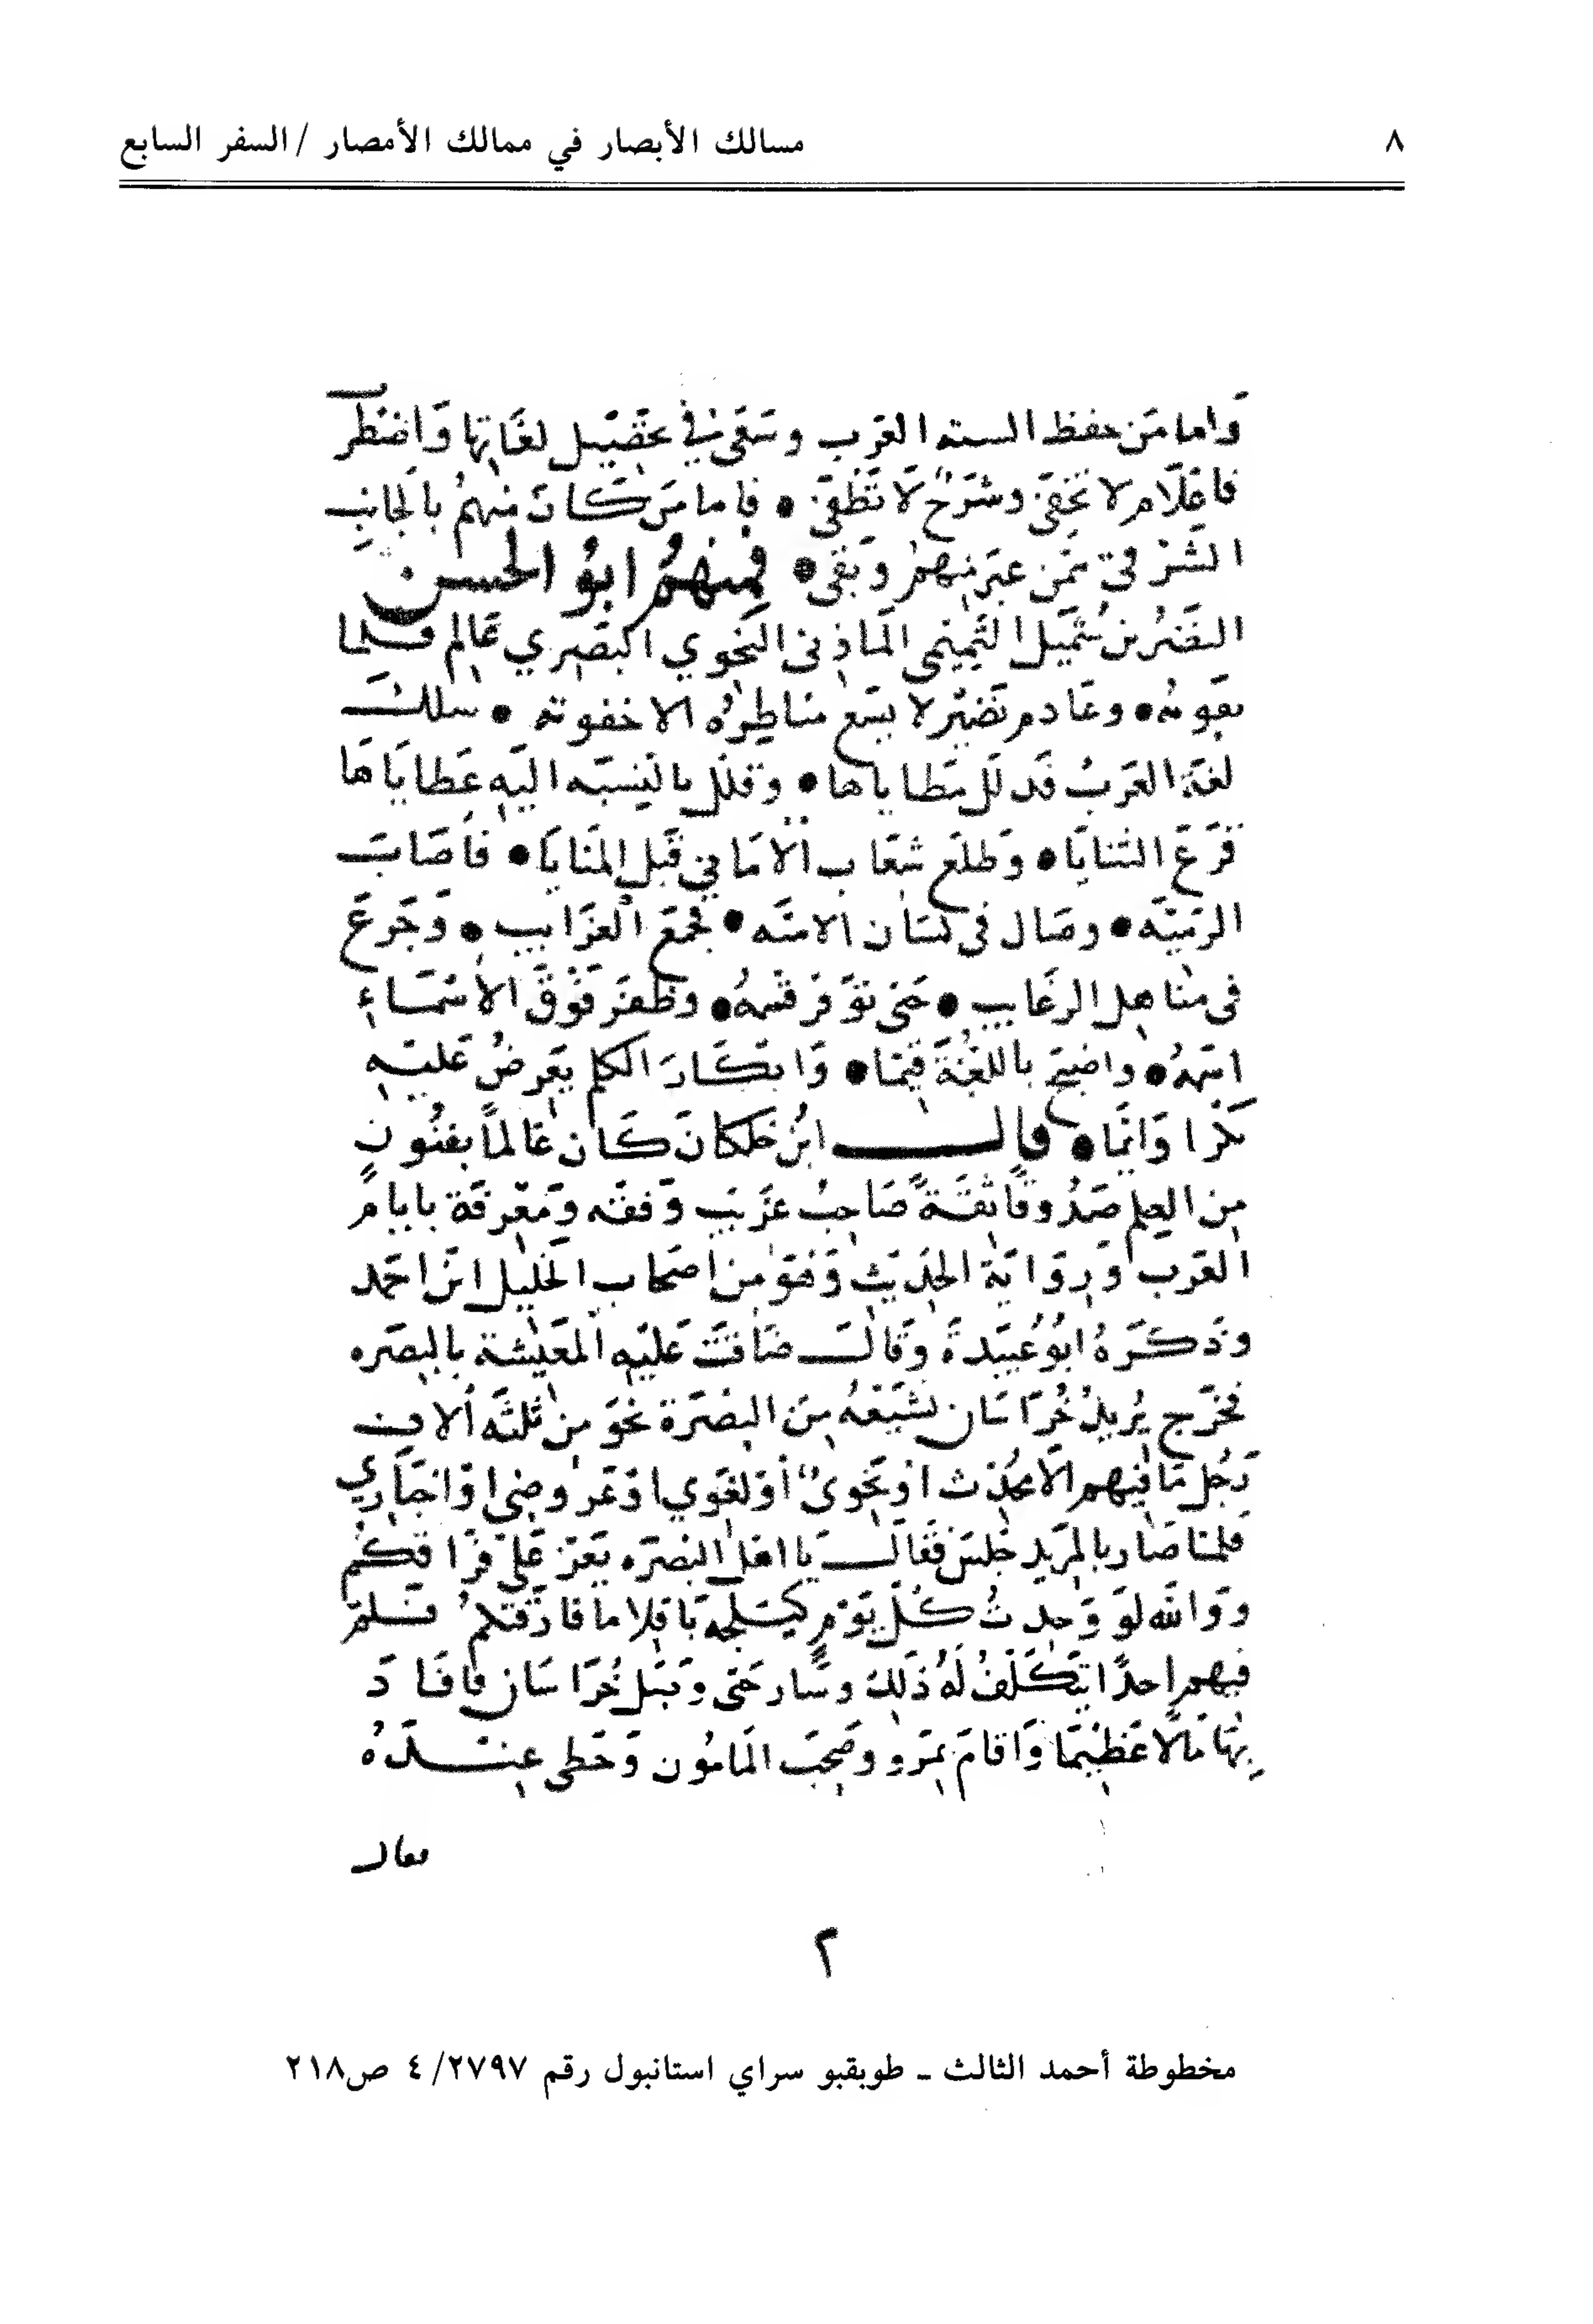 ٨
مسالك الأبصار في ممالك الأمصار / السفر السابع
وَاما مَن حفظ السنه العَرب وسَعَى في تحصيل لغَاتها وَاضطرب
فاعْلام لا تخفَى وشرحٌ لَا تطْفَى ● فاما مَن كَانَ منهمُ بالجَانِب
الشرقى ممن عبَر منهم وبَقى ● فمنهمُ ابوُ الحسن
النضرُ بن شُمَيل التميمى المَازنى النَحوي البَصري عَالِم
● وعَادم نَضير لا يسَع مناظِرهُ الا خفوته ● سلك
لغَة العَربُ فَذلّل مَطاياها ● وقلّل بالنسبَه اليَه عَطايَاهَا
قرَعَ الثنايَا ● وَطلعَ شعَاب الامَاني قَبل المَنايَا ● فأصَابَ
الرميَّه ● وصَال فى لسَان الامَّه ● فجمعَ الغرَايب ● وَجَرعَ
فى منَاهِل الرغَايب ● حَتى توَفر قسمهُ ● وَظفر فَوْقَ الأسْمَاءِ
اسمهُ ● واضحَ باللغَة قيمَا ● وَابكار الكلِم يَعرضُ عَليهِ
● قال ابنُ خلكانَ كَان عَالماً بفنُون
من العِلم صَدُوقاً ثقةً صَاحبُ غرَيب وَفقه وَمَعْرفَة بايامِ
العَرب وَروَايَة الحَدَيث وَهوَ من أصحَاب الخَليل ابن احمَد
وَذكرَهُ ابوُ عُبَيدةَ وَقالَ ضَاقت عَليه المعَيشة بالبصَره
فخرَج يُريدُ خُرَاسَان فشيّعهُ مِنَ البصْرَة نحوَ مِن ثلثَه ألاف
رَجُل مَا فيهم الَّا محُدّث اوْ نحَوىٌ أوْ لغَوي اوْ عَروضى اوْ اخبَاري
فلمَّا صَار بالمربد جَلسَ فقَالَ يا اهل البصْرَه يَعزّ عَليّ فرَاقكُم
ووَالله لوْ وَجدتُ كلّ يَوْمٍ كيلجَه بَاقلا ما فارَقتكم فلَم
فيهم احدًا يتكَلّفُ لَهُ ذَلكَ وسَار حَتى وصَل خُرَاسَان فافَادَ
بهَا مَالاً عَظيمًا وَاقامَ بمَرو وصَحِبَ المَامُون وَحَظى عِندَهُ
فقال
٢
مخطوطة أحمد الثالث ـ طوبقبو سراي استانبول رقم ٢٧٩٧/ ٤ ص٢١٨